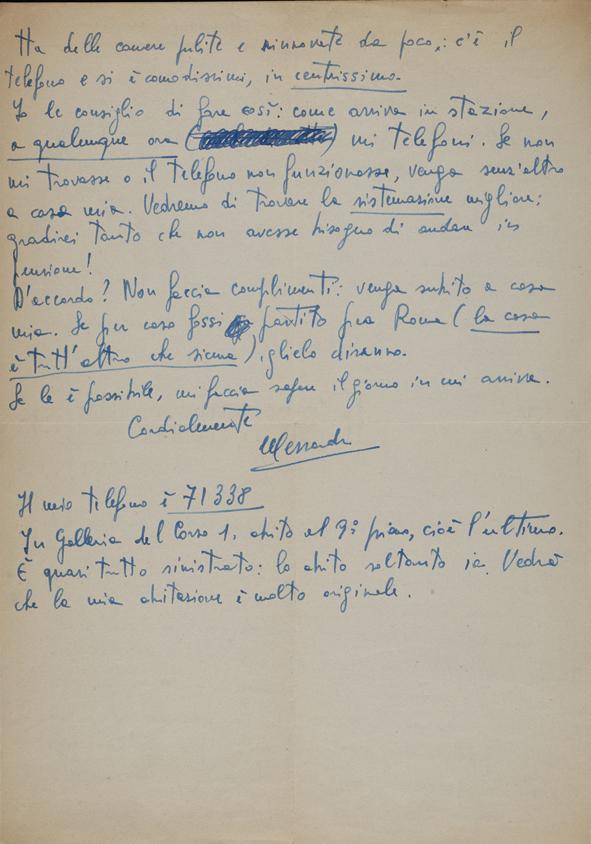 Ha delle camere pulite e rinnovate da poco,: c'è il
telefono e si è comodissimi, in centrissimo.
Io le consiglio di fare così: come arriva in stazione,
a qualunque ora mi telefoni. Se non
mi trovasse o il telefono non funzionasse, venga senz'altro
a casa mia. Vedremo di trovare la sistemazione migliore;
gradirei tanto che non avesse bisogno di andare in
pensione!
D'accordo? Non faccia complimenti: venga subito a casa
mia. Se per caso fossi partito per Roma (la cosa
è tutt'altro che sicura), glielo diranno.
Se le è possibile, mi faccia sapere il giorno in cui arriva.
Cordialmente
Il mio telefono è 71338
In Galleria del Corso 1, abito al 9° piano, cioè l'ultimo.
È quasi tutto sinistrato: lo abito soltanto io. Vedrà
che la mia abitazione è molto originale.